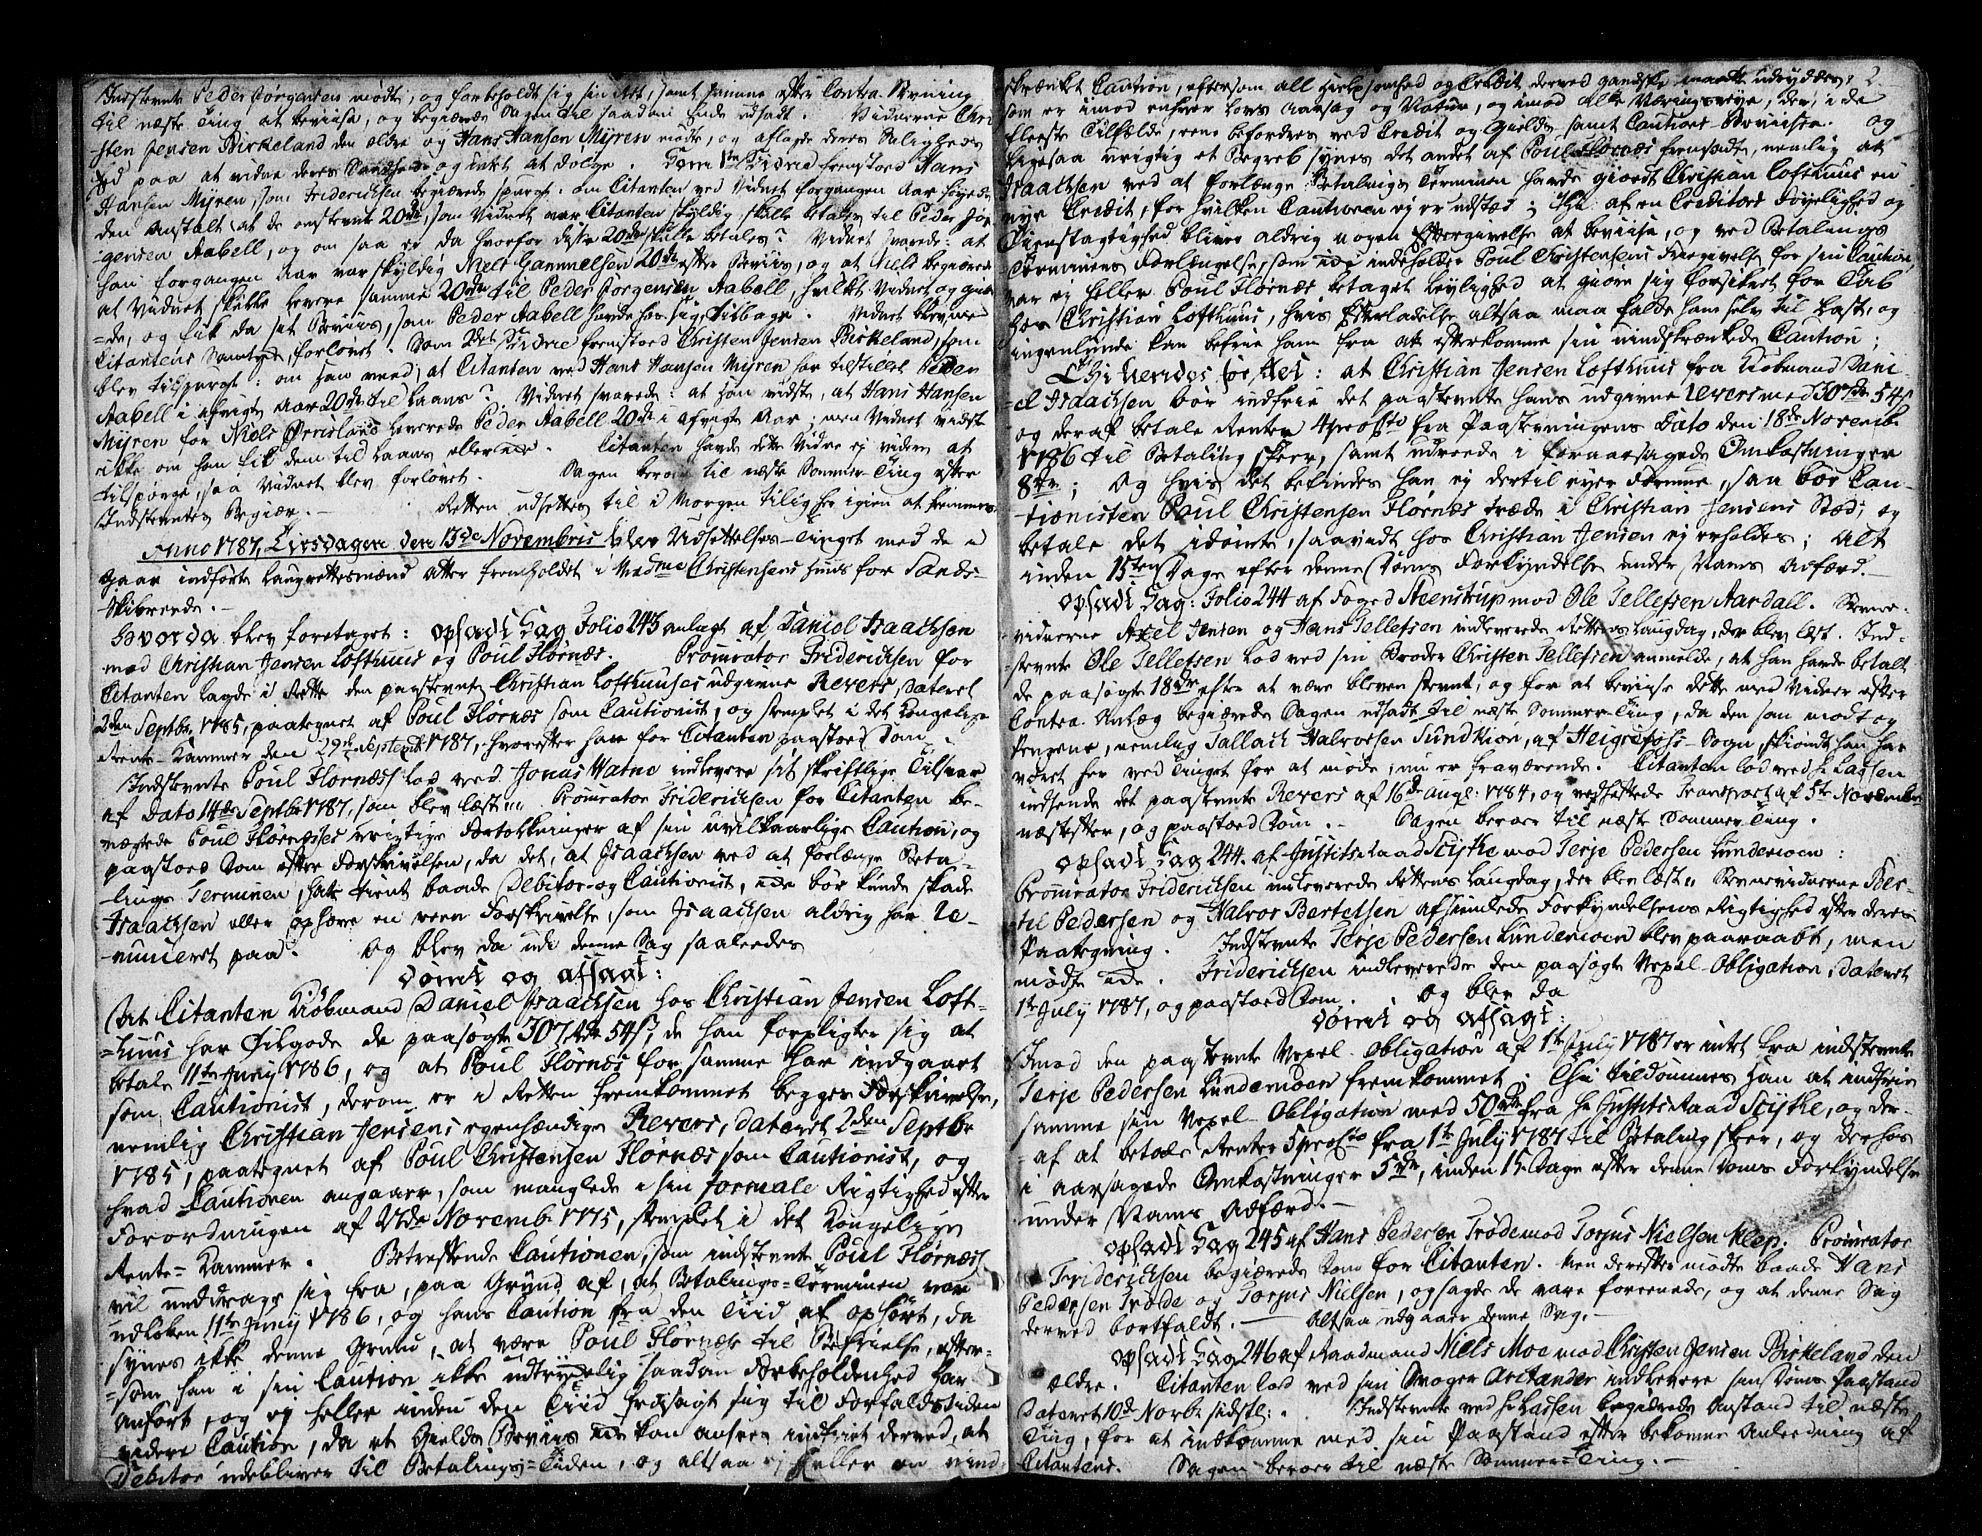 Indstevnte Peder Jørgensen mødte, og forbeholdt sig sin Ret, samt Stevne efter Contra-Stevning
til næste Ting at beviise, og begiærede Sagen til saadan Ende udsadt. Vidnerne Chri-
sten Jensen Birkeland den ældre og Hans Hansen Myren mødte, og aflagde deres Saligheds
Eed paa at vidne deres Sandhed og intet at dølge. Som 1ste Vidne fremstoed Hans
Hansen Myren, som Friderichsen begiærede spurgt: om Citanten ved Vidnet forgangen Aar
den Anstalt at de omstevnte 20rd, som Vidnet var Citanten skyldig, skulle betales til Peder Jør-
gensen Aabell, og om saa er da hvorfor disse 20rd skulle betales? Vidnet svarede: at
han forgangen Aar var skyldig Niels Gunnuldsen 20rd efter Beviis, og at Niels begiærede
at Vidnet skulle levere samme 20rd til Peder Jørgensen Aabell, hvilket Vidnet og gior-
=de, og fik da sit Beviis, som Peder Aabell havde hos sig, tilbage. Vidnet blev, med
Citantens Samtykke, forløvet. Som 2det Vidne fremstoed Christen Jensen Birkeland, som
blev tilspurgt: om han veed, at Citanten ved Hans Hansen Myren har tilstillet Peder
Aabell i afvigte Aar 20rd til Laans? Vidnet svarede: at han vidste, at Hans Hansen
Myren for Niels Ørnesland leverede Peder Aabell 20rd i afvigte Aar; men Vidnet vidste
ikke om han fik dem til Laans eller ei. Citanten havde dette Vidne ej videre at
tilspørge, saa Vidnet blev forløvet. Sagen beroer til næste Sommer Ting efter
Indstevntes Begiær. Retten udsettes til i Morgen tilig her igien at fremmes
Anno 1787, Tirsdagen den 13de Novembris blev Udsettelses-Tinget med de i
gaar indførte Laugrettesmænd atter fremholdet i Madme Christensens Huus for Sands-
Skibreede.
Hvorda blev foretaget: opsadt Sag Folio 243 anlagt af Daniel Isaachsen
mod Christian Jensen Lofthuus og Poul Flørnæs. Procurator Friderichsen for
Citanten lagde i Rette den paastevnte Christian Lofthuuses udgivne Revers, Dateret
2den Septbr. 1785, paategnet af Poul Flørnæs som Cautionist, og stemplet i det Kongelige
Rente-Kammer den 29de Septembr 1787, hvorefter han for Citanten paastoed Dom.
Indstevnte Poul Flørnæs lod ved Jonas Watne indlevere sit skriftlige Tilsvar
af Dato 14de Septbr 1787, som blev læst. Procurator Friderichsen for Citanten be-
nægtede Poul Flørnæsses urigtige Fortolkninger af sin uvilkaarlige Caution, og
paastoed Dom efter Forskrivelsen, da det, at Isaachsen ved at forlænge Beta-
lings Terminen, har tient baade Debitor og Cautionist, ikke bør kunde skade
Isaachsen eller ophæve en reen Forskrivelse, som Isaachsen aldrig har re-
nuncieret paa. og blev da udi denne Sag saaledes
dømt og afsagt:
At Citanten Kiøbmand Daniel Isaachsen hos Christian Jensen Loft-
=huus har tilgode de paasøgte 307rdr 54s, de han forpligter sig at
betale 11te Juny 1786, og at Poul Flørnæs for samme har indgaaet
som Cautionist, derom er i Retten fremkommet begges Forskrivelse,
nemlig Christian Jensens egenhændige Revers, Dateret 2den Septbr
1785, paategnet af Poul Christensen Flørnæs som Cautionist, og
hvad Cautionen angaaer, som manglede i sin formale Rigtighed efter
Forordningen af 27de Novemb. 1775, stemplet i det Kongelige
Rente-Kammer. Betreffende Cautionen, som indstevnte Poul Flørnæs
vil unddrage sig fra, paa Grund af, at Betalings-Terminen var
udløben 11te Juny 1786, og hans Caution fra den Tiid af ophørt, da
synes ikke denne Grund, at være Poul Flørnæs til Befrielse, efter-
=som han i sin Caution ikke udtrykkelig saadan Forbeholdenhed har
anført, og ej heller inden den Tiid frasagt sig til Forfaldstiden
videre Caution, da et Gields Beviis ikke kan ansees indfriet derved, at
Debitor udebliver til Betalings-Tiden, og altsaa ej heller en uind-
skrænket Caution, eftersom all Hielpsomhed og Credit derved gandske maatte udryddes; 2
som er imod enhver Lovs Aarsag og Natur, og imod alle Næringsveye, der, i de
fleeste Tilfælde, ene befordres ved Credit og Gields samt Cautions-Beviiser. og
ligesaa urigtig et Begreb synes det andet af Poul Flørnæs fremsadte, nemlig at
Isaachsen ved at forlænge Betalings Terminen havde giordt Christian Lofthuus en
nye Credit, for hvilken Cautionen ej er udstæd; Thi af en Creditors Føyelighed og
Tienstagtighed bliver aldrig nogen Eftergivelse at beviise, og ved Betalings
Terminens Forlængelse, som ikke indeholder Poul Christensens Friegivelse for sin Caution,
var ej heller Poul Flørnæs betaget Leylighed at giøre sig forsikret for Tab
hos Christian Lofthuus, hvis Efterladelse altsaa maa falde ham selv til Last, og
ingenlunde kan befrie ham fra at efterkomme sin uindskrænkede Caution;
Thi kiendes for Ret: at Christian Jensen Lofthuus fra Kiøbmand Dani-
el Isaachsen bør indfrie det paastevnte hans udgivne Revers med 307rdr 54s
og deraf betale Renter 4 proCto fra Paastevningens Dato den 18de Novembr.
1786 til Betaling skeer, samt udreede i foraarsagede Omkostninger
8rdr; Og hvis det befindes han ej dertil eyer Formue, saa bør Cau-
tionisten Poul Christensen Flørnæs træde i Christian Jensens Sted; og
betale det idømte, saavidt hos Christian Jensen ej erholdes; alt
inden 15ten Dage efter denne Doms Forkyndelse under Nams Adfærd.
opsadt Sag: Folio 244 af Foged Steenstrup mod Ole Tellefsen Aardall. Stevne-
vidnerne Axel Jensen og Hans Tellefsen indleverede Rettens Laugdag, der blev læst. Ind-
stevnte Ole Tellefsen lod ved sin Broder Christen Tellefsen anmelde, at han havde betalt
de paasøgte 18rdr efter at være bleven stevnt, og for at beviise dette med Vidner efter
Contra-Anlæg begiærede Sagen udsadt til næste Sommer-Ting, da den som modtog
Pengene, nemlig Tallach Halvorsen Sundtiøn, af Heigrefoss-Sogn, skiøndt han har
været her ved Tinget for at møde, nu er fraværende. Citanten lod ved Hr Lassen
indsende det paastevnte Revers af 16de Aug: 1784, og vedheftede Transport af 5te November
næstefter, og paastoed Dom. Sagen beroer til næste Sommer Ting.
opsadt Sag 244. af Justitsraad Scyhke mod Terje Pedersen Lundemoen:
Procurator Friderichsen indleverede Rettens Laugdag, der blev læst. Stevnevidnerne Ber-
til Pedersen og Halvor Bertelsen afhiemlede Forkyndelsens Rigtighed efter deres
Paategning. Indstevnte Terje Pedersen Lundemoen blev paaraabt, men
mødte ikke. Friderichsen indleverede den paasøgte Vexel-Obligation, dateret
1te July 1787, og paastoed Dom. Og blev da
dømt og afsagt:
Imod den paastevnte Vexel-Obligation af 1te July 1787 er intet fra indstevnte
Terje Pedersen Lundemoen fremkommet. Thi tildømmes han at indfrie
samme sin Vexel-Obligation med 50rdr fra Hr Justitsraad Scyhke, og der-
=af at betale Renter 5 proCto fra 1te July 1787 til Betaling skeer, og derhos
i aarsagede Omkostninger 5rdr, inden 15 Dage efter denne Doms Forkyndelse
under Nams Adfærd.
opsadt Sag 245 af Hans Pedersen Trøde mod Torjus Nielsen Klep. Procurator
Friderichsen begiærede Dom for Citanten. Men derefter mødte baade Hans
Pedersen Trøde og Torjus Nielsen, og sagde de vare foreenede, og at denne Sag
derved bortfaldt. Altsaa udgaaer denne Sag.
opsadt Sag 246 af Raadmand Niels Moe mod Christen Jensen Birkeland den
ældre. Citanten lod ved sin Svoger Aritander indlevere sin Doms Paastand
Dateret 10de Novbr. sidstl: Indstevnte ved Hr Lassen begiærede Anstand til næste
Ting, for at indkomme med sin Paastand efter bekomne Anledning af
Citantens. Sagen beroer til næste Sommer-Ting.